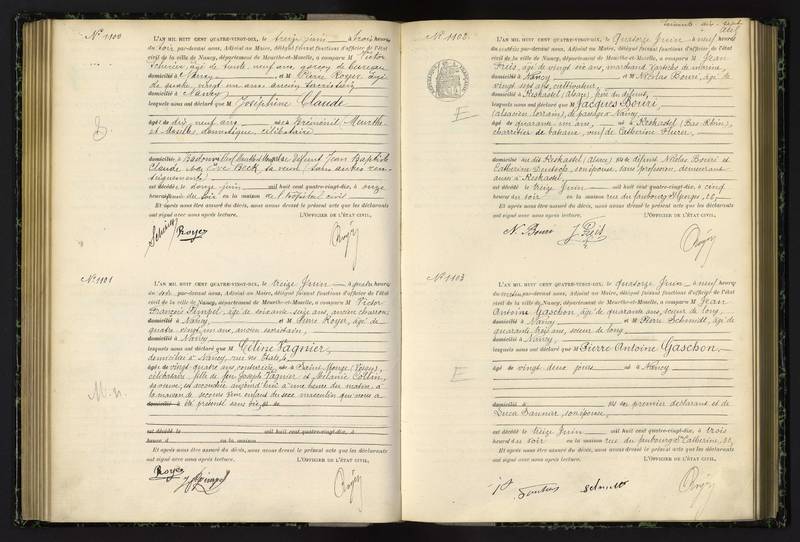 N° 1100
L'AN MIL HUIT CENT QUATRE-VINGT-DIX, le treize juin à trois heures
du soir par-devant nous, Adjoint au Maire, délégué faisant fonctions d'officier de l'état
civil de la ville de Nancy, département de Meurthe-et-Moselle, a comparu M Victor
âgé de trente neuf ans garçon de bureau
domicilié à Nancy et M Pierre Royer, âgé
de quatre vingt un ans ancien
domicilié à Nancy
lesquels nous ont déclaré que M Joséphine Claude
âgé de dix neuf ans né à Brémenil, Meurthe
et Moselle, domestique, célibataire
domicilié à Badonviller Meurthe et Moselle défunt Jean Baptiste
Claude et Eve Beck, sa veuve (sans autres ren-
seignements)
est décédé le douze juin mil huit cent quatre-vingt-dix, à onze
heures du soir en la maison de l'hôpital civil
Et après nous être assuré du décès, nous avons dressé le présent acte que les déclarants
ont signé avec nous après lecture. L'OFFICIER DE L'ÉTAT CIVIL,
Royer
N° 1101
L'AN MIL HUIT CENT QUATRE-VINGT-DIX, le treize Juin à quatre heures
du soir par-devant nous, Adjoint au Maire, délégué faisant fonctions d'officier de l'état
civil de la ville de Nancy, département de Meurthe-et-Moselle, a comparu M Victor
François Pimpel, âgé de soixante seize ans, ancien charron
domicilié à Nancy et M Pierre Royer, âgé de
quatre vingt un ans, ancien
domicilié à Nancy
lesquels nous ont déclaré que M Céline Vagnier,
domiciliée à Nancy, rue des Etats,
âgée de vingt quatre ans, née à Saint (Vosges)
célibataire fille de feu Joseph Vagnier et Mélanie Collin,
sa veuve, est accouchée aujourd'hui à une heure du matin à
la maison de secours d'un enfant du sexe masculin qui nous a
domicilié à été présenté sans vie,
est décédé le mil huit cent quatre-vingt-dix, à
heure d en la maison
Et après nous être assuré du décès, nous avons dressé le présent acte que les déclarants
ont signé avec nous après lecture. L'OFFICIER DE L'ÉTAT CIVIL,
Royer
M. n.
N° 1102
L'AN MIL HUIT CENT QUATRE-VINGT-DIX, le quatorze Juin à neuf heures
du matin par-devant nous, Adjoint au Maire, délégué faisant fonctions d'officier de l'état
civil de la ville de Nancy, département de Meurthe-et-Moselle, a comparu M Jean
âgé de vingt six ans, marchand
domicilié à Nancy et M Nicolas Bouri, âgé de
vingt sept ans, cultivateur,
domicilié à Reskastel (Alsace), du défunt,
lesquels nous ont déclaré que M Jacques Bouri
(alsacien lorrain), de passage à Nancy
âgé de quarante un ans, né à Reskastel (Bas Rhin),
veuf de Catherine
domicilié au dit Reskastel (Alsace) fils de défunt Nicolas Bouri et
Catherine son épouse, sans profession, demeurant
aussi à Reskastel,
est décédé le treize Juin mil huit cent quatre-vingt-dix, à cinq
heures du soir en la maison rue du faubourg St Georges, 20,
Et après nous être assuré du décès, nous avons dressé le présent acte que les déclarants
ont signé avec nous après lecture. L'OFFICIER DE L'ÉTAT CIVIL,
N. Bouri
E
N° 1103
L'AN MIL HUIT CENT QUATRE-VINGT-DIX, le quatorze Juin à neuf heures
du matin par-devant nous, Adjoint au Maire, délégué faisant fonctions d'officier de l'état
civil de la ville de Nancy, département de Meurthe-et-Moselle, a comparu M Jean
Antoine Gaschon, âgé de quarante ans, scieur de long
domicilié à Nancy et M Pierre Schmitt, âgé de
quarante trois ans, scieur de long
domicilié à Nancy,
lesquels nous ont déclaré que M Pierre Antoine Gaschon,
âgé de vingt deux jours né à Nancy
domicilié à fils du premier déclarant et de
son épouse,
est décédé le treize Juin mil huit cent quatre-vingt-dix, à trois
heures du soir en la maison rue du faubourg Ste Catherine, 20,
Et après nous être assuré du décès, nous avons dressé le présent acte que les déclarants
ont signé avec nous après lecture. L'OFFICIER DE L'ÉTAT CIVIL,
E